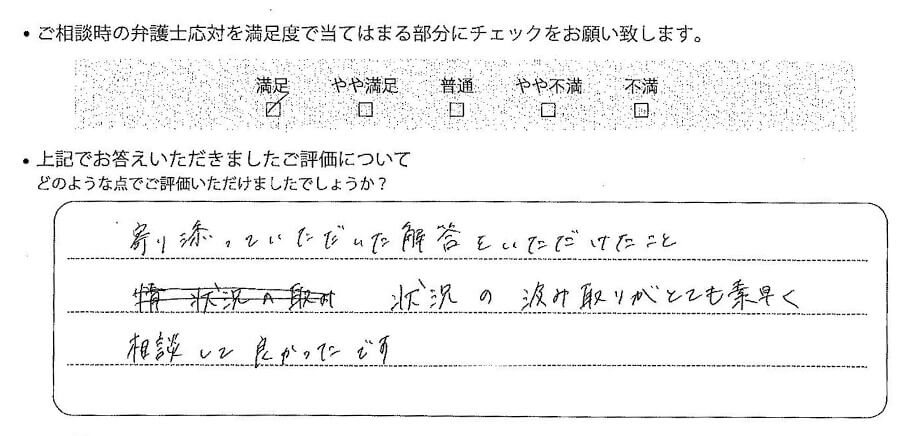 ・ご相談時の弁護士応対を満足度で当てはまる部分にチェックをお願い致します。
満足 やや満足 普通 やや不満 不満
☑ □ □ □ □
・上記でお答えいただきましたご評価について
どのような点でご評価いただけましたでしょうか？
寄り添っていただいた解答をいただけたこと
状況の汲み取りがとても素早く
相談して良かったです